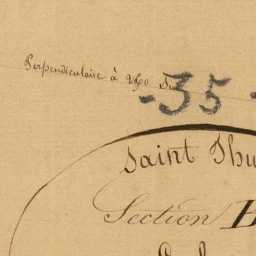 Perpendiculaire à
- 35 -
Saint Thu
Section H